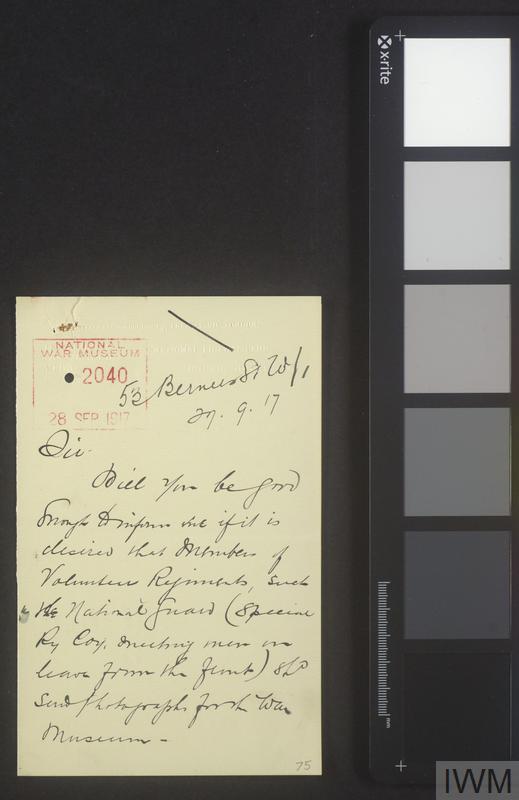 NATIONAL
WAR MUSEUM
2040
28 SEP 1917
53 Berners St W/1
27. 9. 17
Sir.
Will you be good
enough to inform me if it is
desired that Members of
Volunteer Regiments, such
the National Guard (Special
Ry Coy. meeting men on
leave from the front) shd
send photographs for the War
Museum -
75
x-rite
mm
IWM